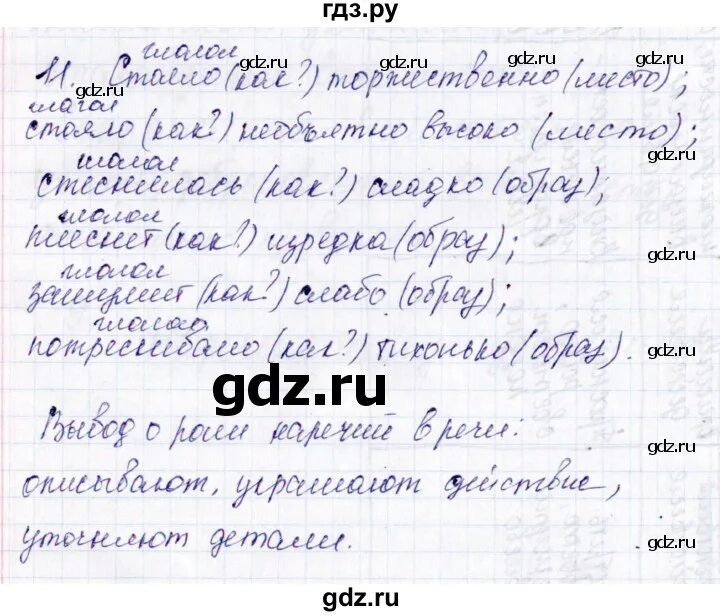 гдз.ру
глагол
11. Стояло (как?) торжественно (место);
глагол
стояло (как?) необъятно высоко (место);
глагол
стеснилась (как?) сладко (образ);
глагол
плеснет (как?) изредка (образ);
глагол
зашумит (как?) слабо (образ);
глагол
потрескивало (как?) тихонько (образ).
Вывод о роли наречий в речи:
описывают, украшают действие,
уточняют детали.
gdz.ru
gdz.ru
gdz.ru
gdz.ru
gdz.ru
gdz.ru
gdz.ru
gdz.ru
gdz.ru
gdz.ru
gdz.ru
gdz.ru
gdz.ru